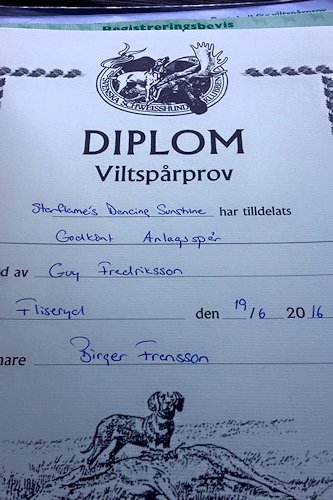 Registreringsbevis
SVENSKA SCHWEISSHUNDKLUBBEN
DIPLOM
Viltspårprov
Starflame's Dancing Sunshine har tilldelats
Godkänt Anlagsspår
d av Guy Fredriksson
Fliseryd den 19/6 2016
nare Birger Fransson